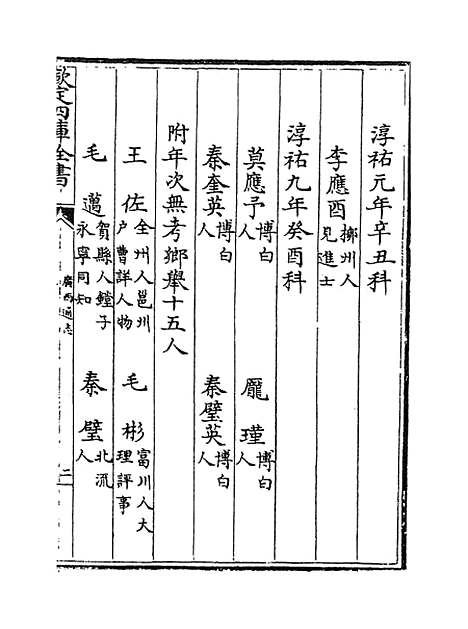 淳祐元年辛丑科
李應酉柳州人見進士
淳祐九年癸酉科
莫應予博白人 龎瑾博白人
秦奎英博白人 秦璧英博白人
附年次無考鄉舉十五人
王佐全州人邕州户曹詳人物 毛彬富川人大理評事
毛邁賀縣人鏜子永寧同知 秦璧北流人
欽定四庫全書 廣西通志